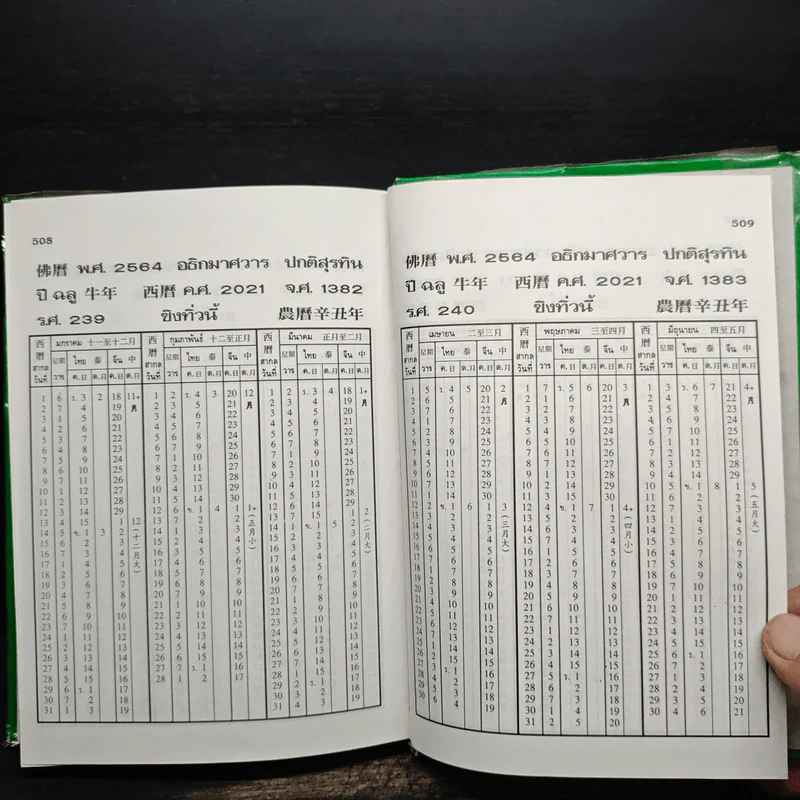 508
佛曆 พ.ศ. 2564 อธิกมาศวาร ปกติสุรทิน
ปี ฉลู 牛年 西曆 ค.ศ. 2021 จ.ศ. 1382
ร.ศ. 239 ซิงทิ่วนี้ 農曆辛丑年
西曆 สากล วันที่ มกราคม 十一至十二月 西曆 สากล วันที่ กุมภาพันธ์ 十二至正月 西曆 สากล วันที่ มีนาคม 正月至二月
星期 ไทย 泰 จีน 中 星期 ไทย 泰 จีน 中 星期 ไทย 泰 จีน 中
วาร ค.ดิ ด.ด วาร ค.ดิ ด.ด วาร ค.ดิ ด.ด
1 6 ร. 3 2 18 11+月 1 2 ร. 4 3 20 12月 1 2 ร. 3 4 18 1+月
2 7 4 19 2 3 5 21 2 3 4 19
3 1 5 20 3 4 6 22 3 4 5 20
4 2 6 21 4 5 7 23 4 5 6 21
5 3 7 22 5 6 8 24 5 6 7 22
6 4 8 23 6 7 9 25 6 7 8 23
7 5 9 24 7 1 10 26 7 1 9 24
8 6 10 25 8 2 11 27 8 2 10 25
9 7 11 26 9 3 12 28 9 3 11 26
10 1 12 27 10 4 13 29 10 4 12 27
11 2 13 28 11 5 14 30 11 5 13 28
12 3 14 29 12 6 ข. 1 4 1 1+(正月小) 12 6 14 29
13 4 15 1 12(十二月大) 13 7 2 2 13 7 15 1 2(二月大)
14 5 ข. 1 3 2 14 1 3 3 14 1 ข. 1 5 2
15 6 2 3 15 2 4 4 15 2 2 3
16 7 3 4 16 3 5 5 16 3 3 4
17 1 4 5 17 4 6 6 17 4 4 5
18 2 5 6 18 5 7 7 18 5 5 6
19 3 6 7 19 6 8 8 19 6 6 7
20 4 7 8 20 7 9 9 20 7 7 8
21 5 8 9 21 1 10 10 21 1 8 9
22 6 9 10 22 2 11 11 22 2 9 10
23 7 10 11 23 3 12 12 23 3 10 11
24 1 11 12 24 4 13 13 24 4 11 12
25 2 12 13 25 5 14 14 25 5 12 13
26 3 13 14 26 6 15 15 26 6 13 14
27 4 14 15 27 7 ร. 1 16 27 7 14 15
28 5 15 16 28 1 2 17 28 1 15 16
29 6 ร. 1 17 29 2 ร. 1 17
30 7 2 18 30 3 2 18
31 1 3 19 31 4 3 19
509
佛曆 พ.ศ. 2564 อธิกมาศวาร ปกติสุรทิน
ปี ฉลู 牛年 西曆 ค.ศ. 2021 จ.ศ. 1383
ร.ศ. 240 ซิงทิ่วนี้ 農曆辛丑年
西曆 สากล วันที่ เมษายน 二至三月 西曆 สากล วันที่ พฤษภาคม 三至四月 西曆 สากล วันที่ มิถุนายน 四至五月
星期 ไทย 泰 จีน 中 星期 ไทย 泰 จีน 中 星期 ไทย 泰 จีน 中
วาร ค.ดิ ด.ด วาร ค.ดิ ด.ด วาร ค.ดิ ด.ด
1 5 ร. 4 5 20 2月 1 7 ร. 5 6 20 3月 1 3 ร. 6 7 21 4+月
2 6 5 21 2 1 6 21 2 4 7 22
3 7 6 22 3 2 7 22 3 5 8 23
4 1 7 23 4 3 8 23 4 6 9 24
5 2 8 24 5 4 9 24 5 7 10 25
6 3 9 25 6 5 10 25 6 1 11 26
7 4 10 26 7 6 11 26 7 2 12 27
8 5 11 27 8 7 12 27 8 3 13 28
9 6 12 28 9 1 13 28 9 4 14 29
10 7 13 29 10 2 14 29 10 5 ข. 1 8 1 5(五月大)
11 1 14 30 11 3 15 30 11 6 2 2
12 2 ข. 1 6 1 3(三月大) 12 4 ข. 1 7 1 4+(四月小) 12 7 3 3
13 3 2 2 13 5 2 2 13 1 4 4
14 4 3 3 14 6 3 3 14 2 5 5
15 5 4 4 15 7 4 4 15 3 6 6
16 6 5 5 16 1 5 5 16 4 7 7
17 7 6 6 17 2 6 6 17 5 8 8
18 1 7 7 18 3 7 7 18 6 9 9
19 2 8 8 19 4 8 8 19 7 10 10
20 3 9 9 20 5 9 9 20 1 11 11
21 4 10 10 21 6 10 10 21 2 12 12
22 5 11 11 22 7 11 11 22 3 13 13
23 6 12 12 23 1 12 12 23 4 14 14
24 7 13 13 24 2 13 13 24 5 15 15
25 1 14 14 25 3 14 14 25 6 ร. 1 16
26 2 15 15 26 4 15 15 26 7 2 17
27 3 ร. 1 16 27 5 ร. 1 16 27 1 3 18
28 4 2 17 28 6 2 17 28 2 4 19
29 5 3 18 29 7 3 18 29 3 5 20
30 6 4 19 30 1 4 19 30 4 6 21
31 2 5 20